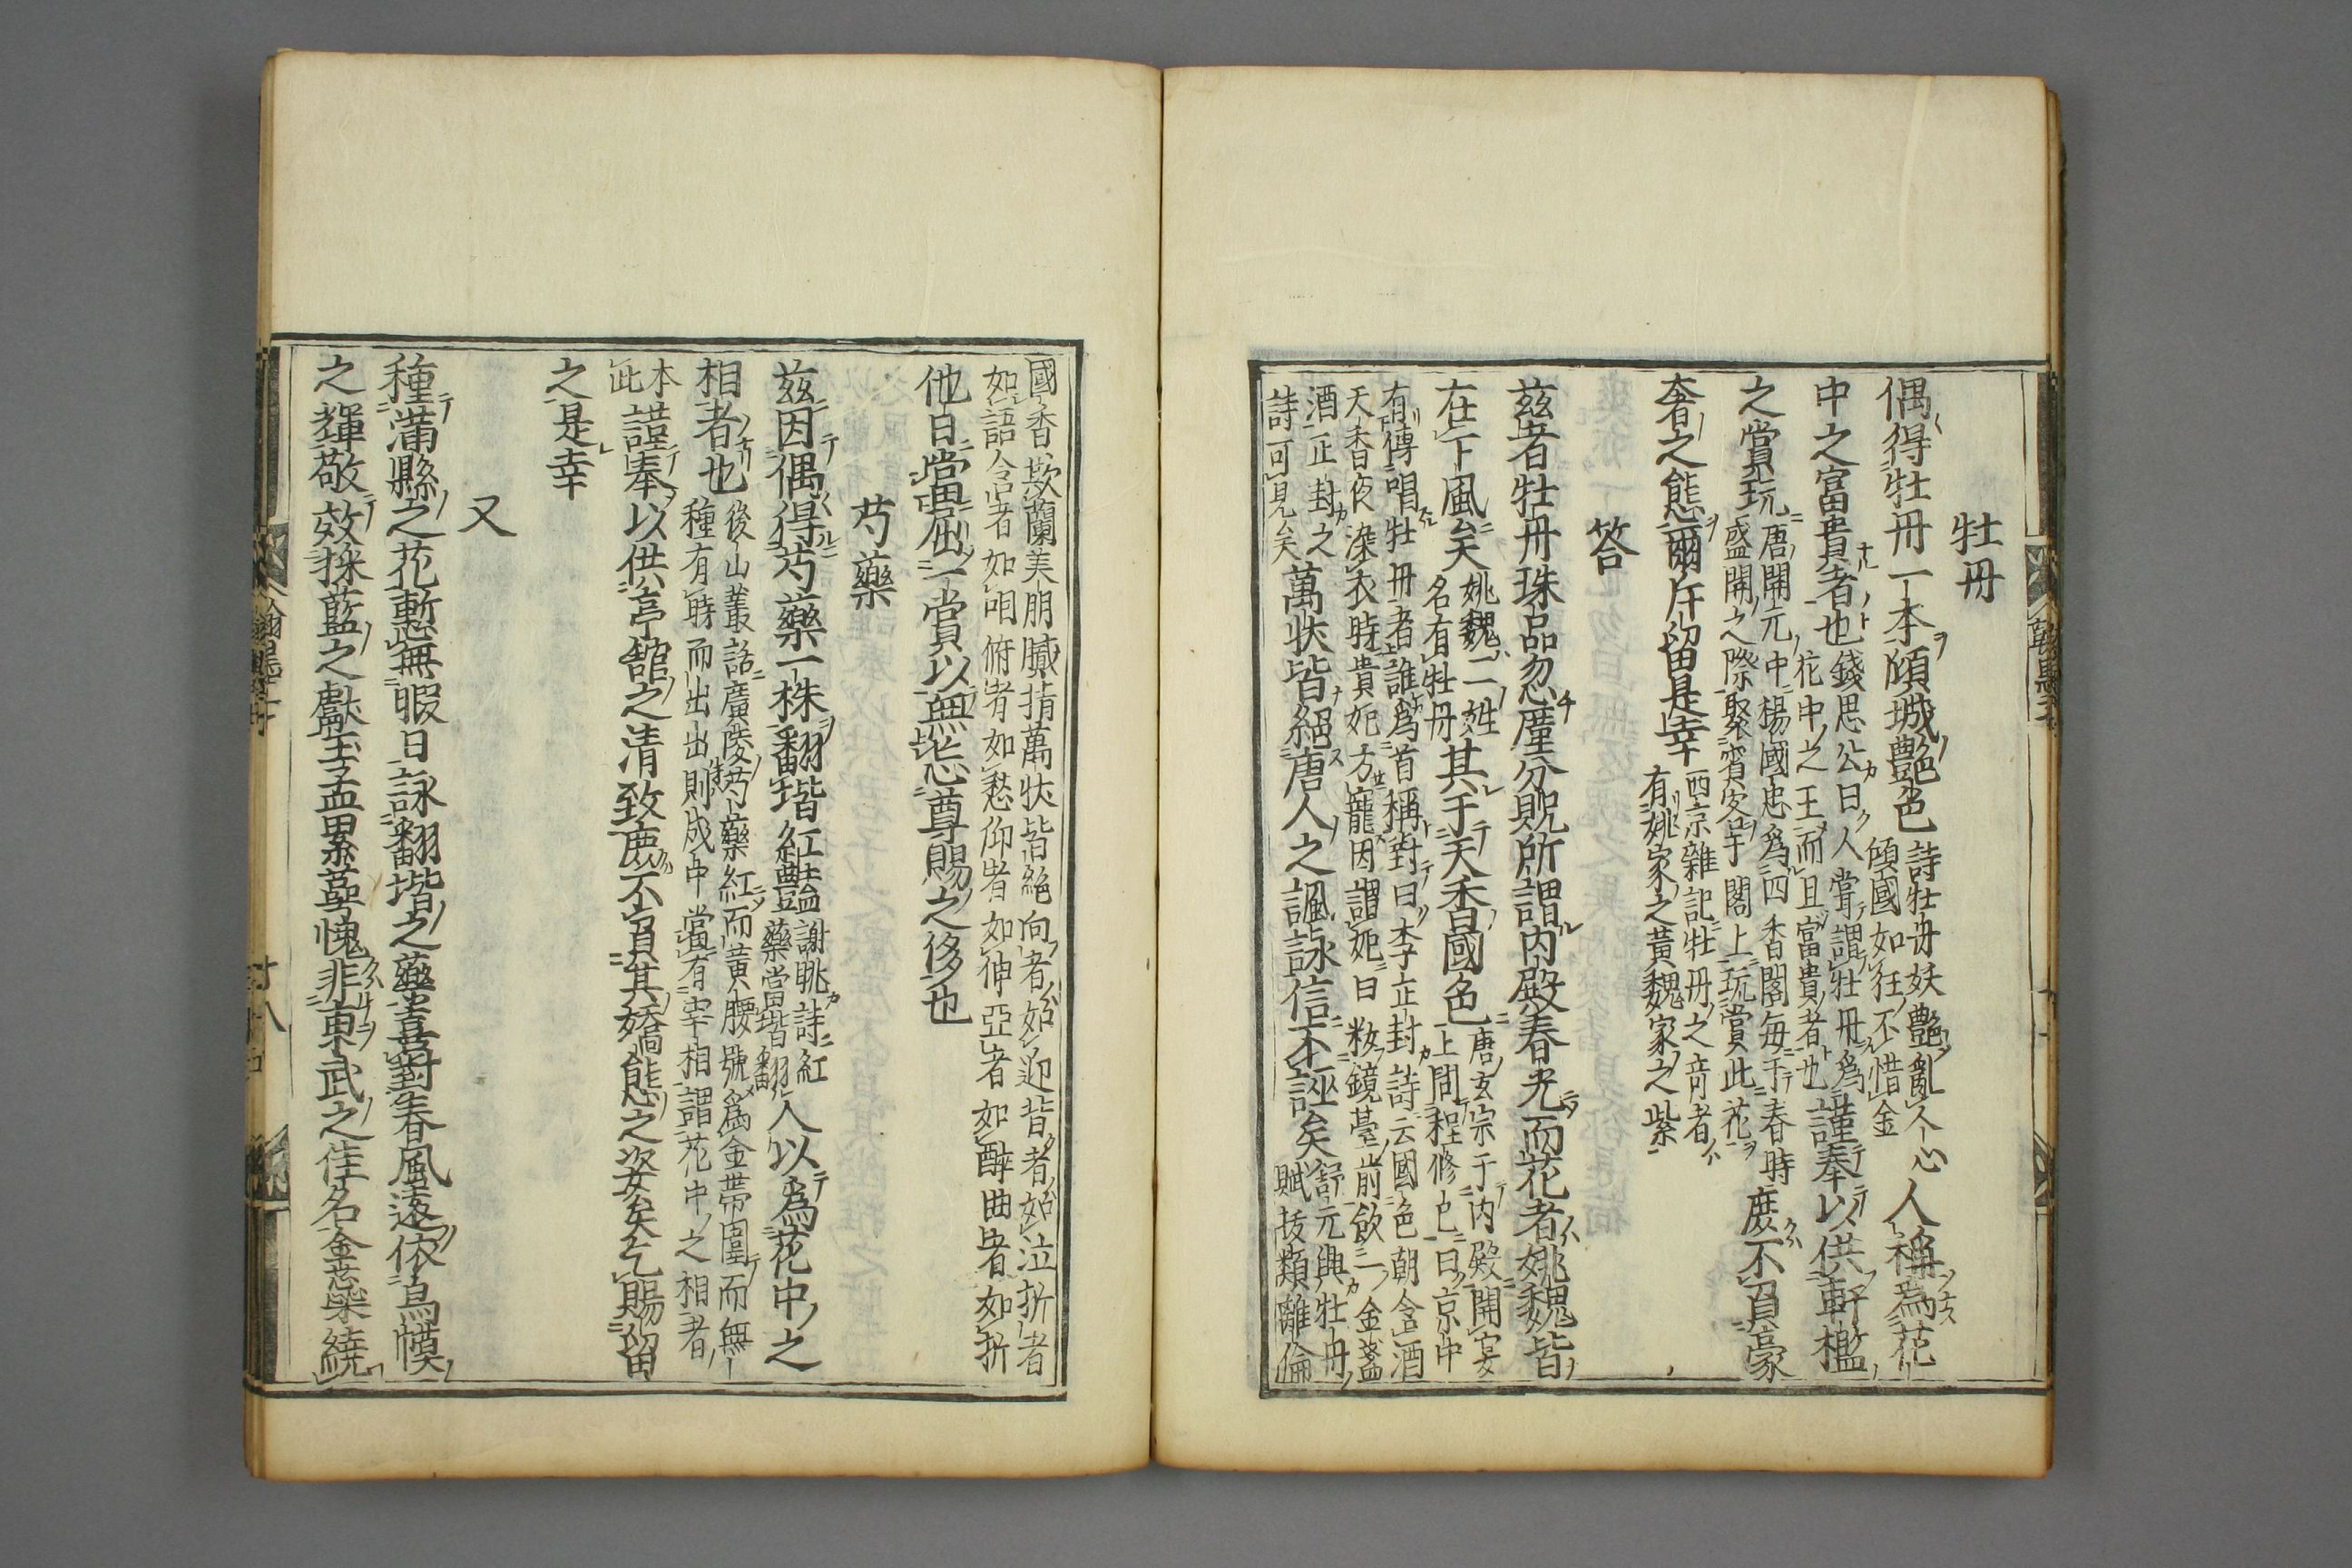 牡丹
偶得牡丹一本傾城艶色
詩牡丹妖艶亂人心
傾國如狂不惜金
人稱爲花
中之富貴者也
錢思公曰人嘗謂牡丹爲
花中之王而且富貴者也
謹奉以供軒檻
之賞玩
唐開元中楊國忠爲四香閣每于春時
盛開之際聚賓客于閣上玩賞此花
庻不負豪
奢之態爾斤留是幸
西京雜記牡丹之竒者
有姚家之黄魏家之紫
答
兹者牡丹珠品忽塵分貺所謂内殿春光而花者姚魏皆
在下風矣
姚魏二姓
名有牡丹
其于天香國色
唐玄宗于内殿開宴
上問程修巳曰京中
有傳唱牡丹者誰爲首稱對曰李正封詩云國色朝令酒
天香夜溁衣時貴妃方寵因謂妃曰粧鏡臺前飲一金盞
酒正封之
詩可見矣
萬狀皆絕唐人之諷詠信不誣矣
舒元輿牡丹
賦拔類離倫
國香欺蘭美朋膩指萬狀皆絕向者如迎背者如泣折者
如語含者如咽俯者如愁仰者如伸亞者如醉曲者如折
他日當盡一賞以無忘尊賜之侈也
芍藥
茲因偶得芍藥一株翻堦紅豔
謝眺詩紅
藥當堦翻
人以爲花中之
相者也
後山叢話廣陵芍藥紅而黄腰號爲金帶圍而無
種有時而出出則成中當有宰相謂花中之相者
本
此
謹奉以供亭舘之清致庻不負其嬌態之姿矣乞賜留
之是幸
又
種滿縣之花慙無暇日詠翻堦之藥喜對春風逺依烏幙
之輝敬效採藍之獻玉盂累蘂愧非東武之佳名金蘂繞